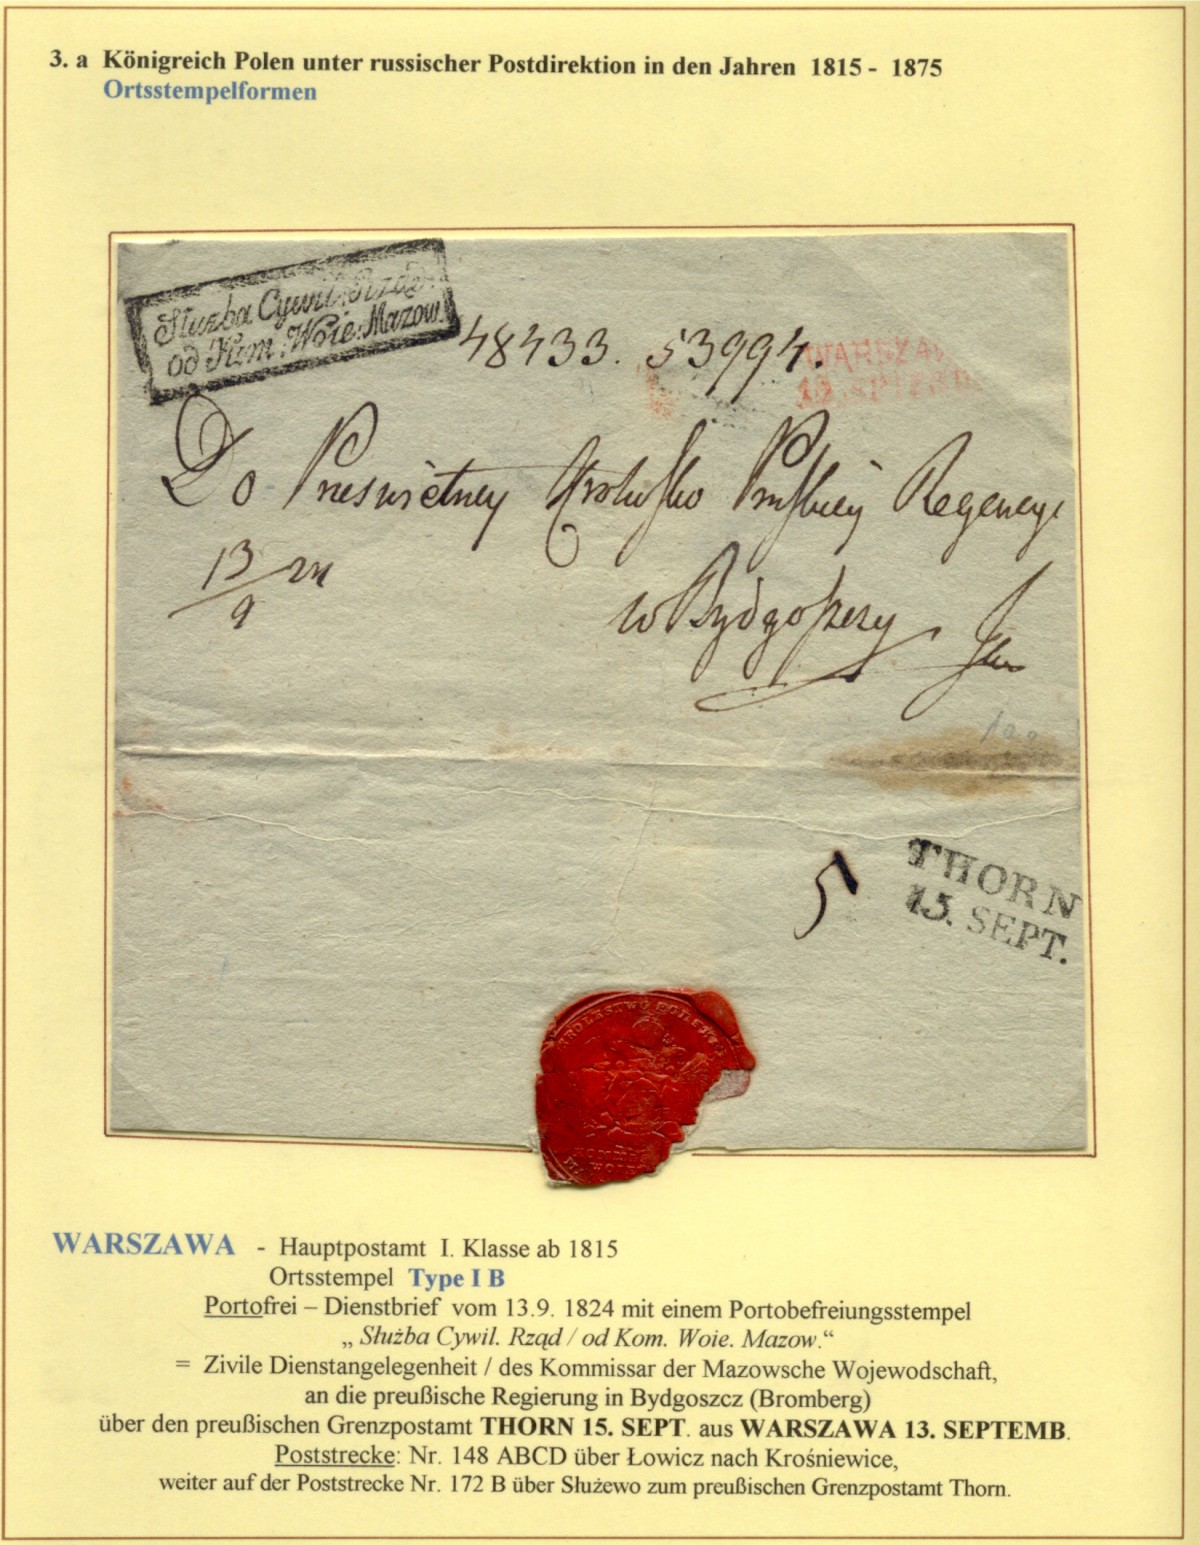 3. a Königreich Polen unter russischer Postdirektion in den Jahren 1815 - 1875
Ortsstempelformen
Służba Cywil. Rząd.
od Kom. Woie. Mazow.
48433. 53994.
WARSZAW
Do Prześwietney Królewsko Pruskiey Regencyi
13/9
w Bydgoszczy
5
THORN
15. SEPT.
KROLESTWO POLSKIE
WARSZAWA - Hauptpostamt I. Klasse ab 1815
Ortsstempel Type I B
Portofrei – Dienstbrief vom 13.9. 1824 mit einem Portobefreiungsstempel
„ Służba Cywil. Rząd / od Kom. Woie. Mazow.“
= Zivile Dienstangelegenheit / des Kommissar der Mazowsche Wojewodschaft,
an die preußische Regierung in Bydgoszcz (Bromberg)
über den preußischen Grenzpostamt THORN 15. SEPT. aus WARSZAWA 13. SEPTEMB.
Poststrecke: Nr. 148 ABCD über Łowicz nach Krośniewice,
weiter auf der Poststrecke Nr. 172 B über Służewo zum preußischen Grenzpostamt Thorn.